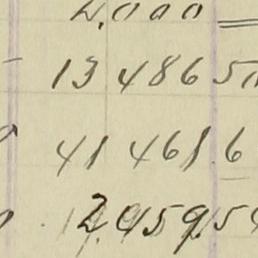 2,000
13 486 5
41 461.6
2,959.5